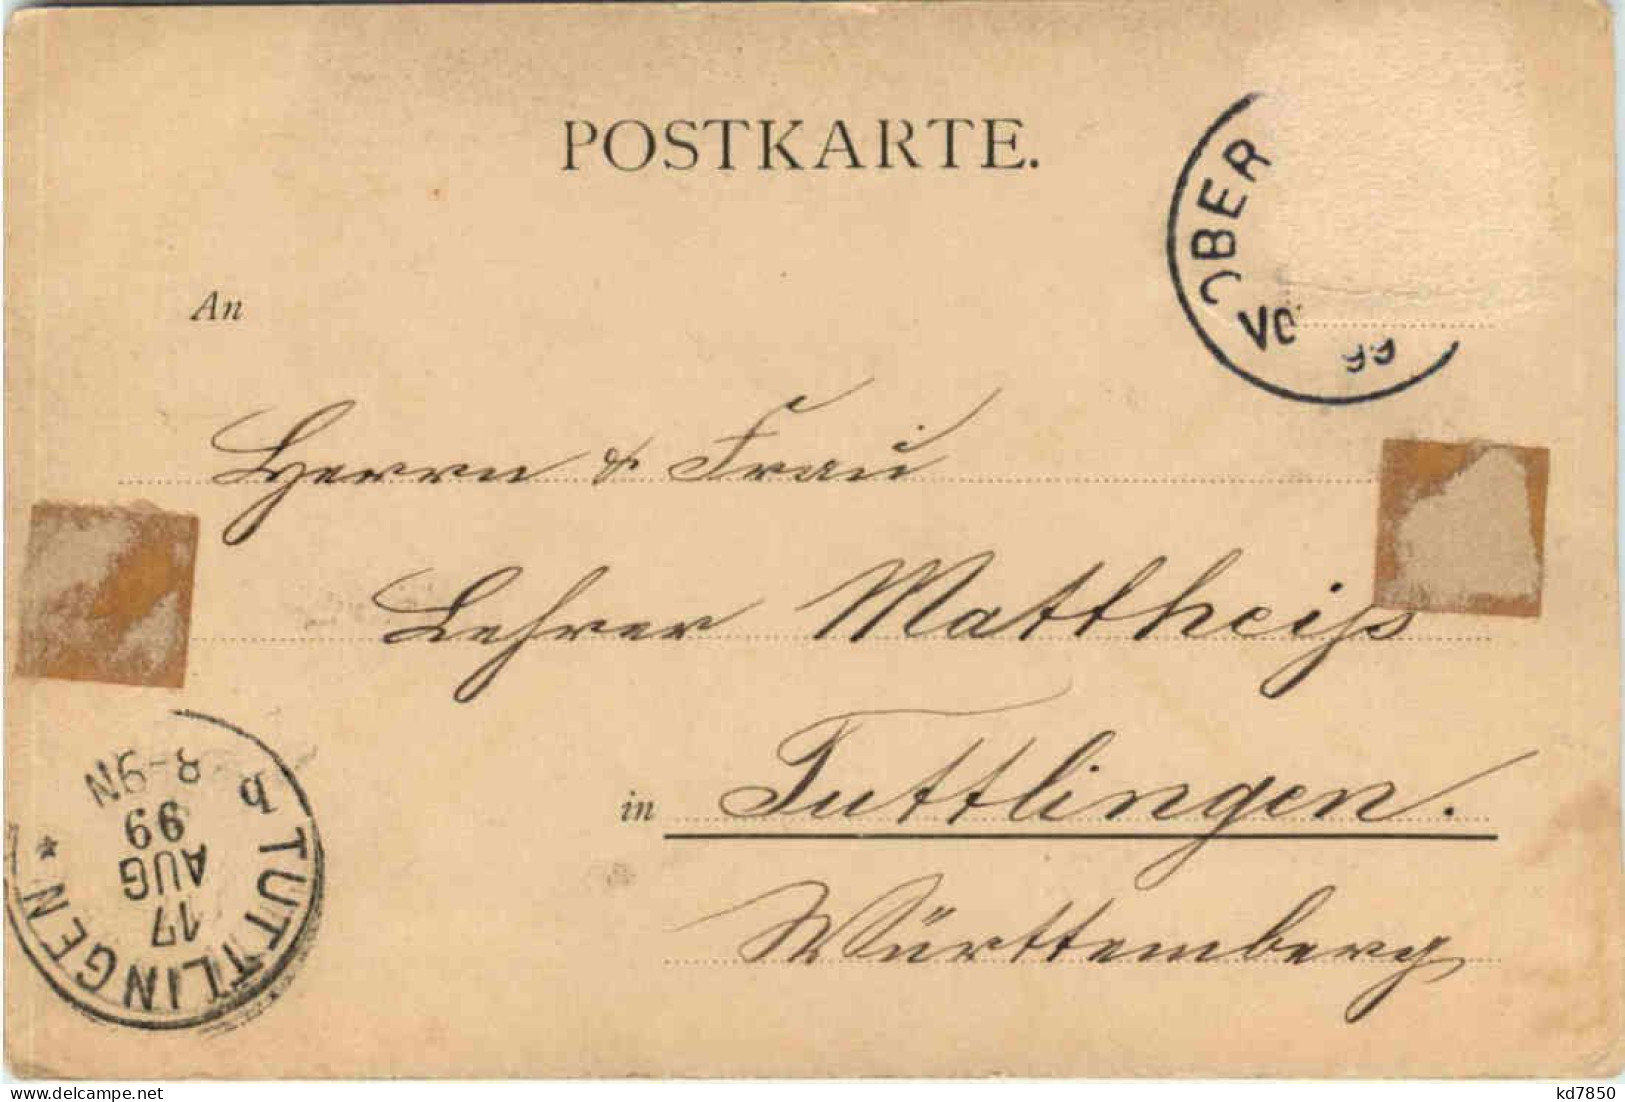 POSTKARTE.
OBER
99
An
Herrn & Frau
Lehrer Mattheiß
in Tuttlingen.
Württemberg
TUTTLINGEN *
b
17
AUG
99
8-9N
kd7850